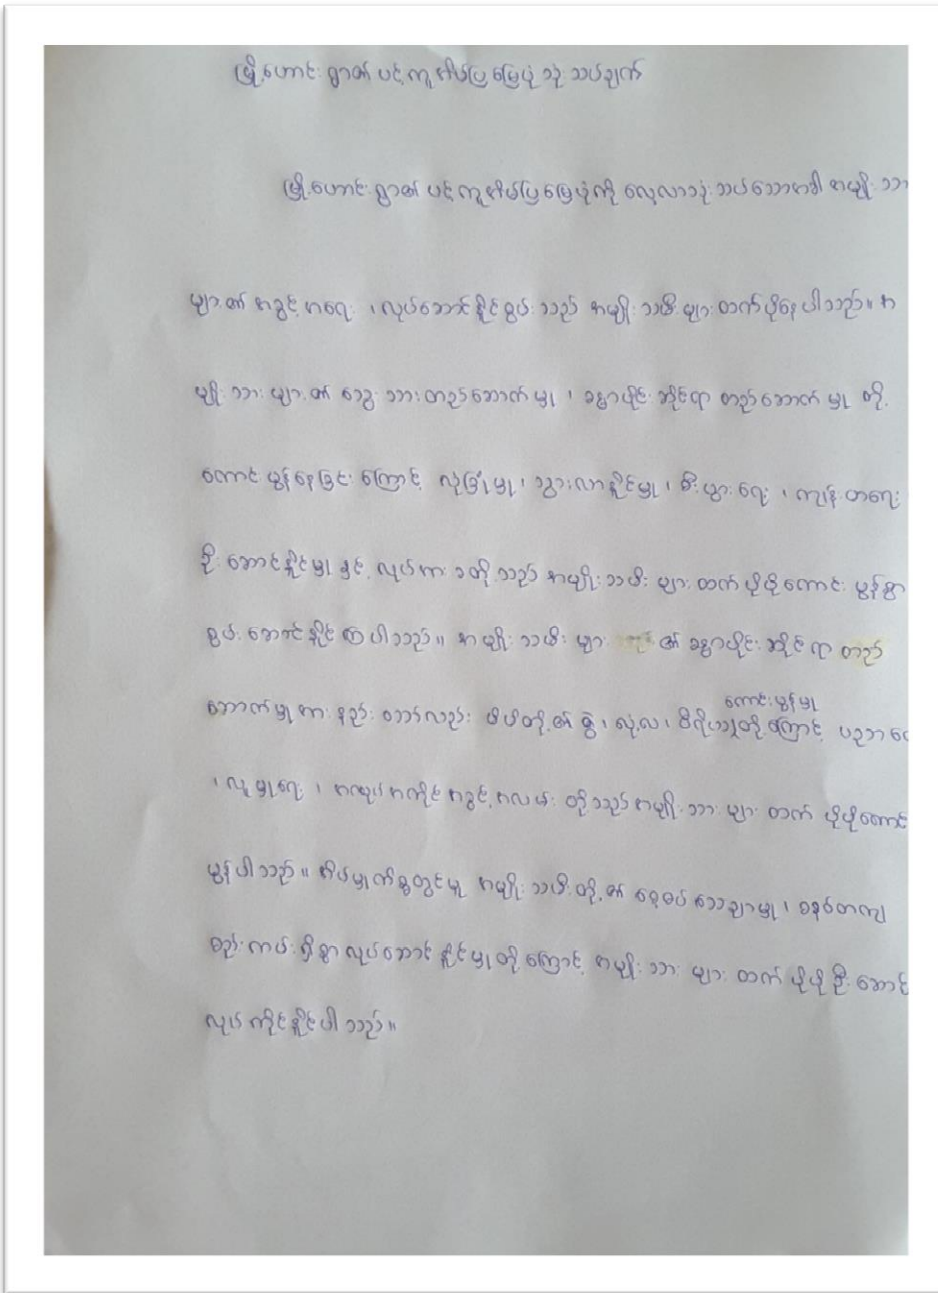 မြို့ဟောင်းရွာ၏ ပင့်ကူအိမ်ပြမြေပုံ သုံးသပ်ချက်
မြို့ဟောင်းရွာ၏ ပင့်ကူအိမ်ပြမြေပုံကို လေ့လာသုံးသပ်သောအခါ အမျိုးသား
များ၏ အခွင့်အရေး၊ လုပ်ဆောင်နိုင်စွမ်းသည် အမျိုးသမီးများထက်ပိုနေပါသည်။ အ
မျိုးသားများ၏ သွေးသားတည်ဆောက်မှု၊ ခန္ဓာပိုင်းဆိုင်ရာ တည်ဆောက်မှုတို့
ကောင်းမွန်နေခြင်းကြောင့် လုံခြုံမှု၊ သွားလာနိုင်မှု၊ စီးပွားရေး၊ ကျန်းမာရေး
ဦးဆောင်နိုင်မှုနှင့် လုပ်အားခတို့သည် အမျိုးသမီးများထက်ပိုမိုကောင်းမွန်စွာ
စွမ်းဆောင်နိုင်ကြပါသည်။ အမျိုးသမီးများ ၏ ခန္ဓာပိုင်းဆိုင်ရာ တည်
ဆောက်မှုအားနည်းသော်လည်း မိမိတို့၏ ဇွဲ၊ လုံ့လ၊ ဝီရိယတို့ ကောင်းမွန်မှု ကြောင့် ပညာရေး
၊ လူမှုရေး၊ အလုပ်အကိုင်အခွင့်အလမ်းတို့သည် အမျိုးသားများထက် ပိုမိုကောင်း
မွန်ပါသည်။ အိမ်မှုကိစ္စတွင်မူ အမျိုးသမီးတို့၏ စေ့စပ်သေချာမှု၊ စနစ်တကျ
စည်းကမ်းရှိစွာလုပ်ဆောင်နိုင်မှုတို့ကြောင့် အမျိုးသားများထက် ပိုမိုဦးဆောင်
လုပ်ကိုင်နိုင်ပါသည်။